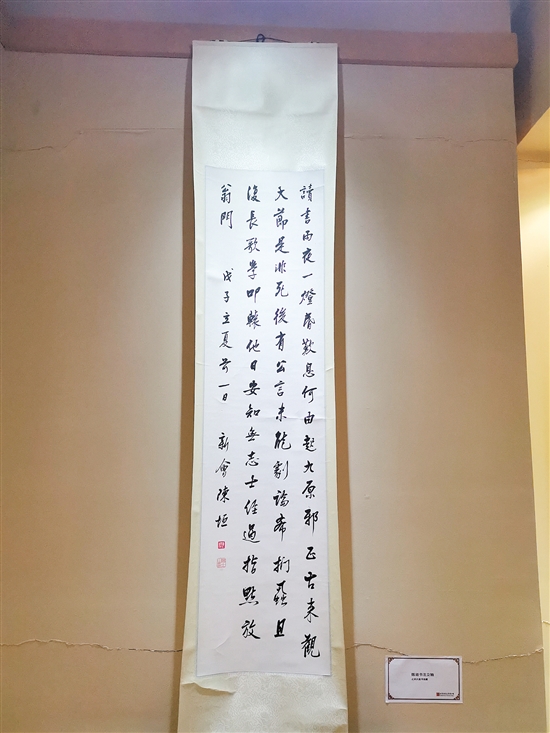 讀書雨夜一燈昏歎息何由起九原邪正古來觀
大節是非死後有公言未能劇論希捫蝨且
復長歌學叩轅他日安知無志士經過指點放
翁門 戊子立夏前一日 新會陳垣